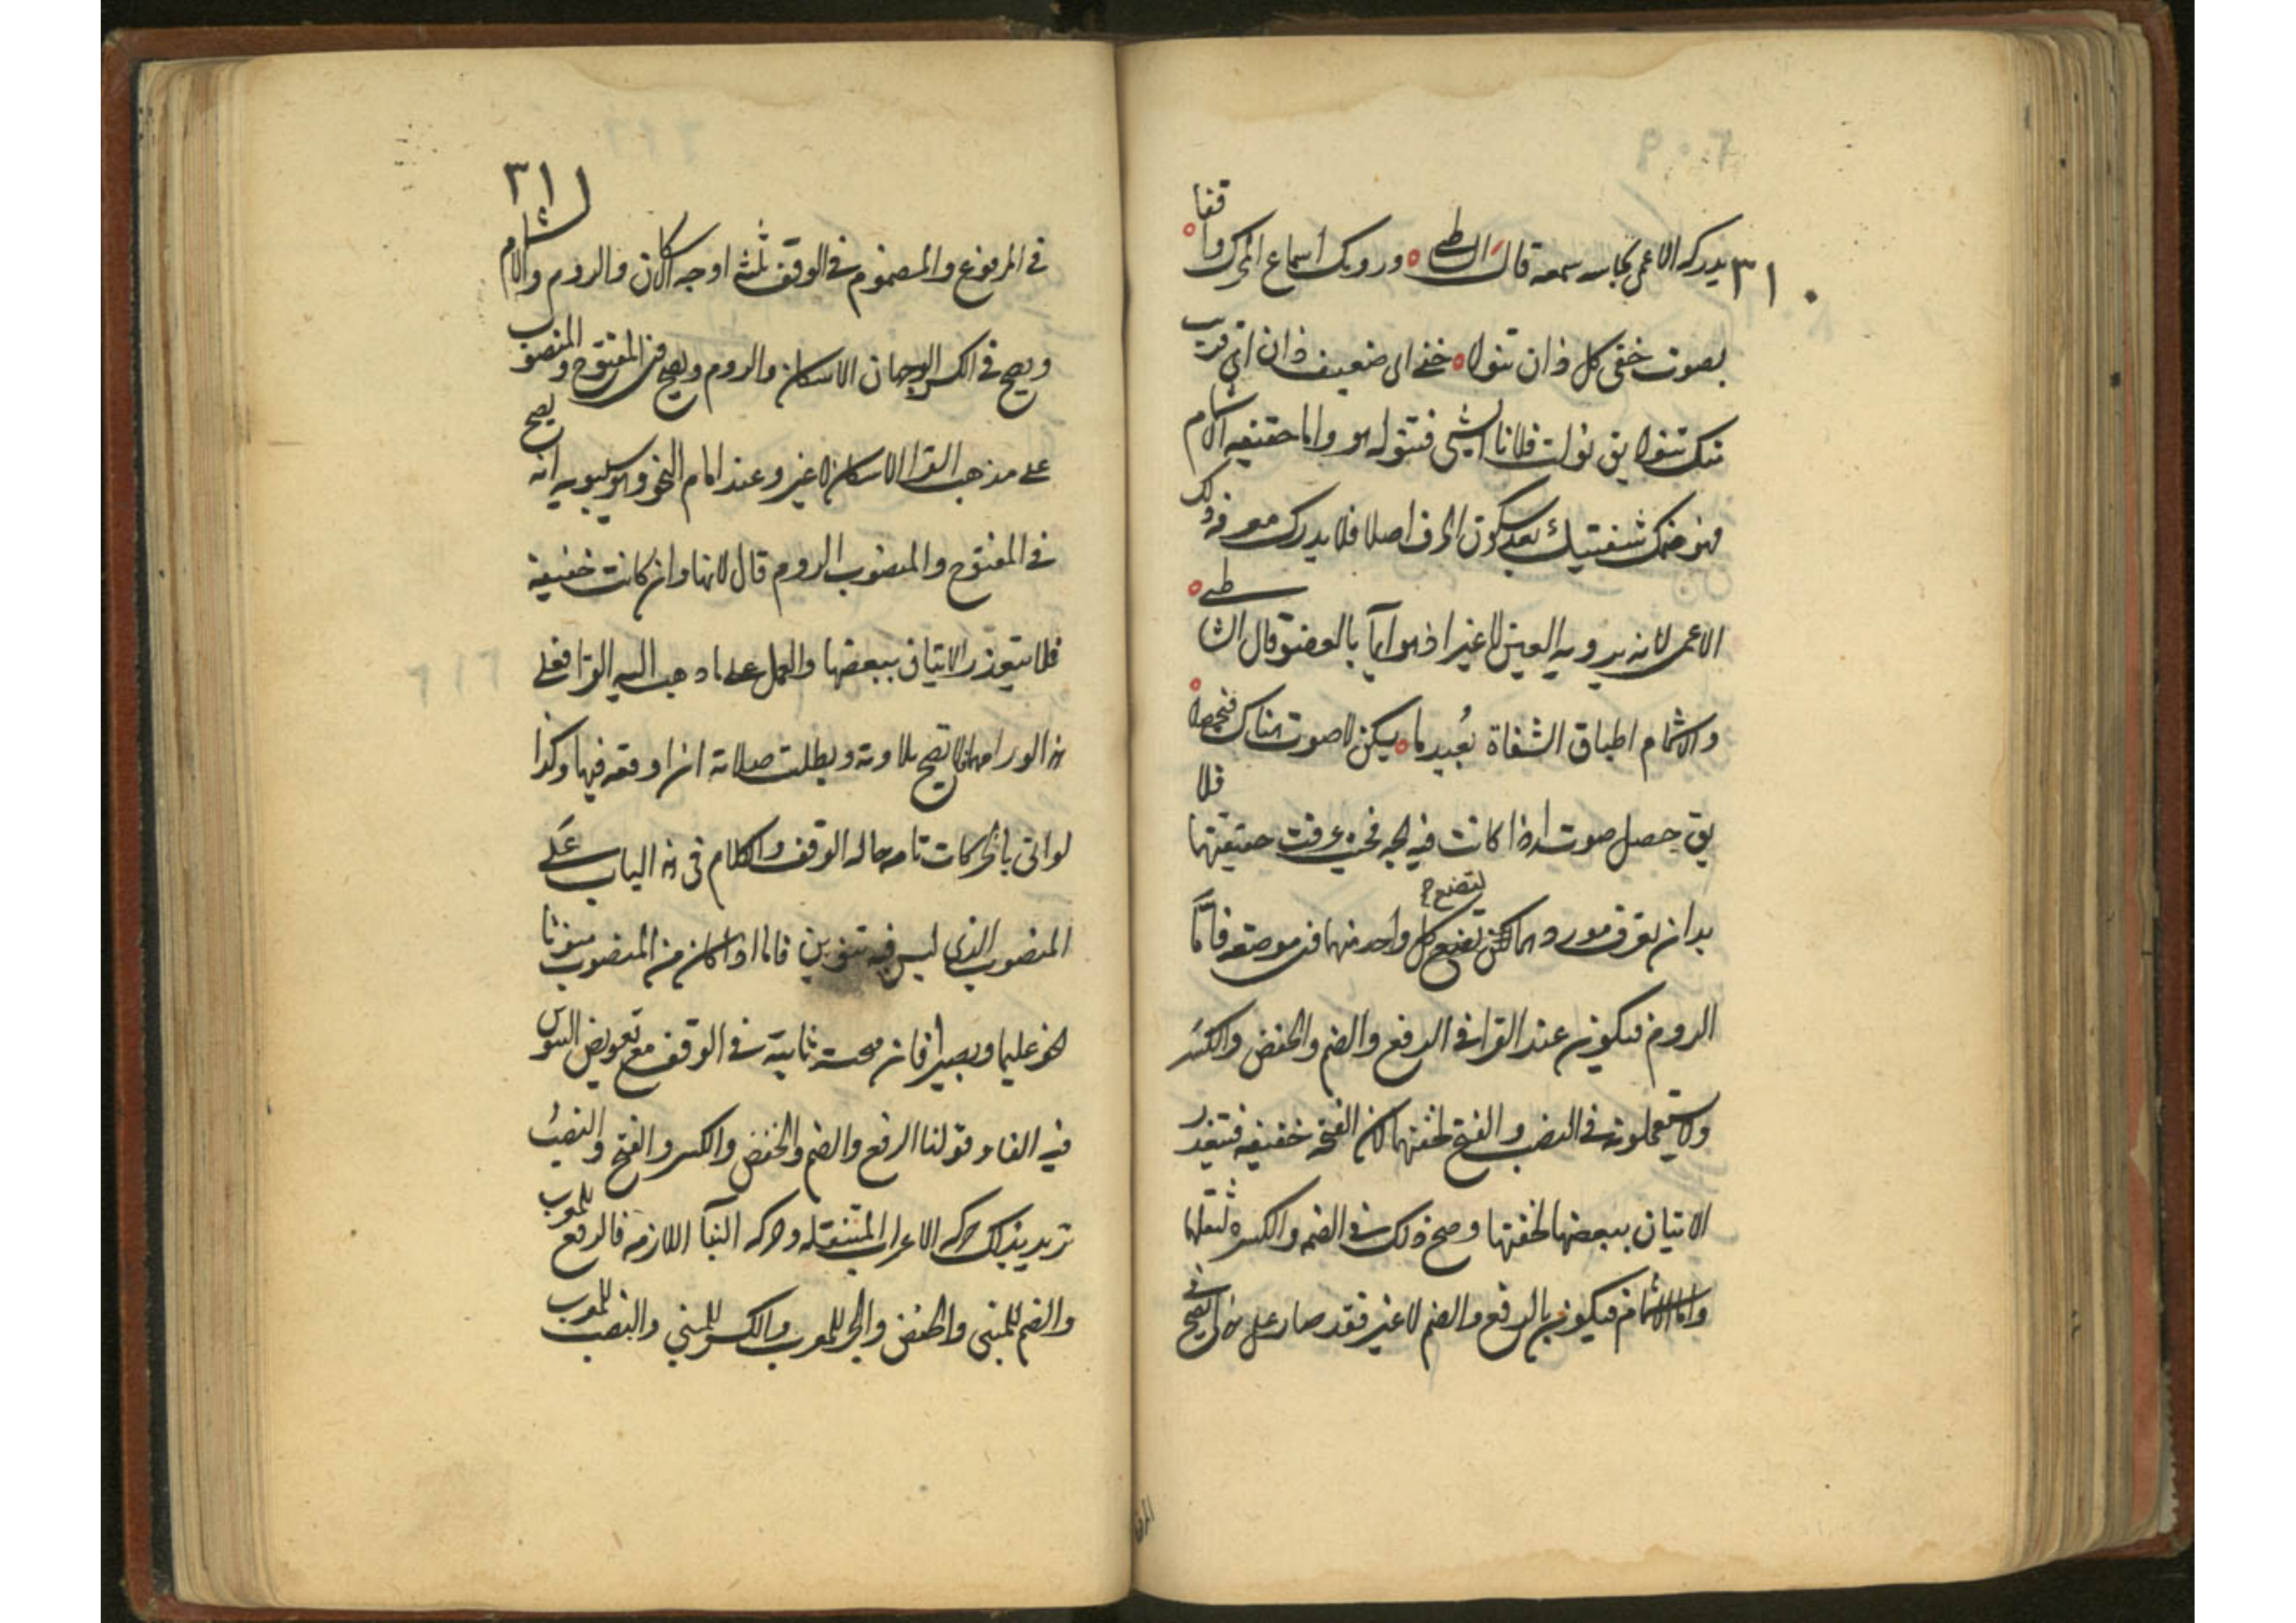 ٣١٠
يدركه الاعمى بحاسه سمعه قال الشاطبي ورومك اسماع المحرك واقفا
بصوت خفي كل دان تنولا خفي اى ضعيف دان اى قريب
منك تنولا يق نولت فلانا الشي فتنوله هو واما حقيقه الاشمام
فهو ضمك شفتيك بعد سكون الحرف اصلا فلا يدرك معرفه ذلك
الاعمى لانه يرويه العين لا غير اذ هو ايمآ بالعضو قال الشاطبي
والاشمام اطباق الشفاة بُعيد ما يسكن لا صوت هناك فيصحلا
يق حصل صوته اذا كانت فيه بحه عرفت حقيقتها فلا
بد ان تعرف موردهما لكن تضع كل واحد منهما فى موضعه فامّا
لتضع
الروم فيكون عند القرا فى الرفع والضم والخفض والكسَر
ولا يستعملونه فى النصب والفتح لخفتهما لان الفتحه خفيفه فتبعذر
الاتيان ببعضها لخفتها وصح ذلك فى الضمه والكسره لثقلها
واما الاشمام فيكون بالرفع والضم لا غير فقد صار على هذا يصح فى
٣١١
فى المرفوع والمضموم فى الوقف ثلثة اوجه الاسكان والروم والاشمام
ويصح فى الكسر الوجهان الاسكان والروم ويصح فى المفتوح والمنصوب
على مذهب القرا الاسكان لا غير وعند امام النحو وهو سيبويه انه يصح
فى المفتوح والمنصوب الروم قال لانها وان كانت خفيفة
فلا يتعذر الاتيان ببعضها والعمل على ما ذهب اليه القرا فعلى
هذ الورامها لا تصح تلاوته وبطلت صلاته ان اوقعه فيها وكذا
لو اتى بالحركات تامه حاله الوقف والكلام فى هذ الباب عَلى
المنصوب الذى ليس فيه تنوين فاما اذا كان من المنصوب منونا
نحو عليما وبصيرا فان فتحته ثابتة فى الوقف مع تعويض التنوين
فيه الفا وقولنا الرفع والضم والخفض والكسر والفتح والنصب
تريد بذلك حركه الاعراب المتنقله وحركه البنآ اللازمه فالرفع للمعرب
والضم للمبنى والخفض والجر للمعرب والكسر للمبني والنصب للمعرب